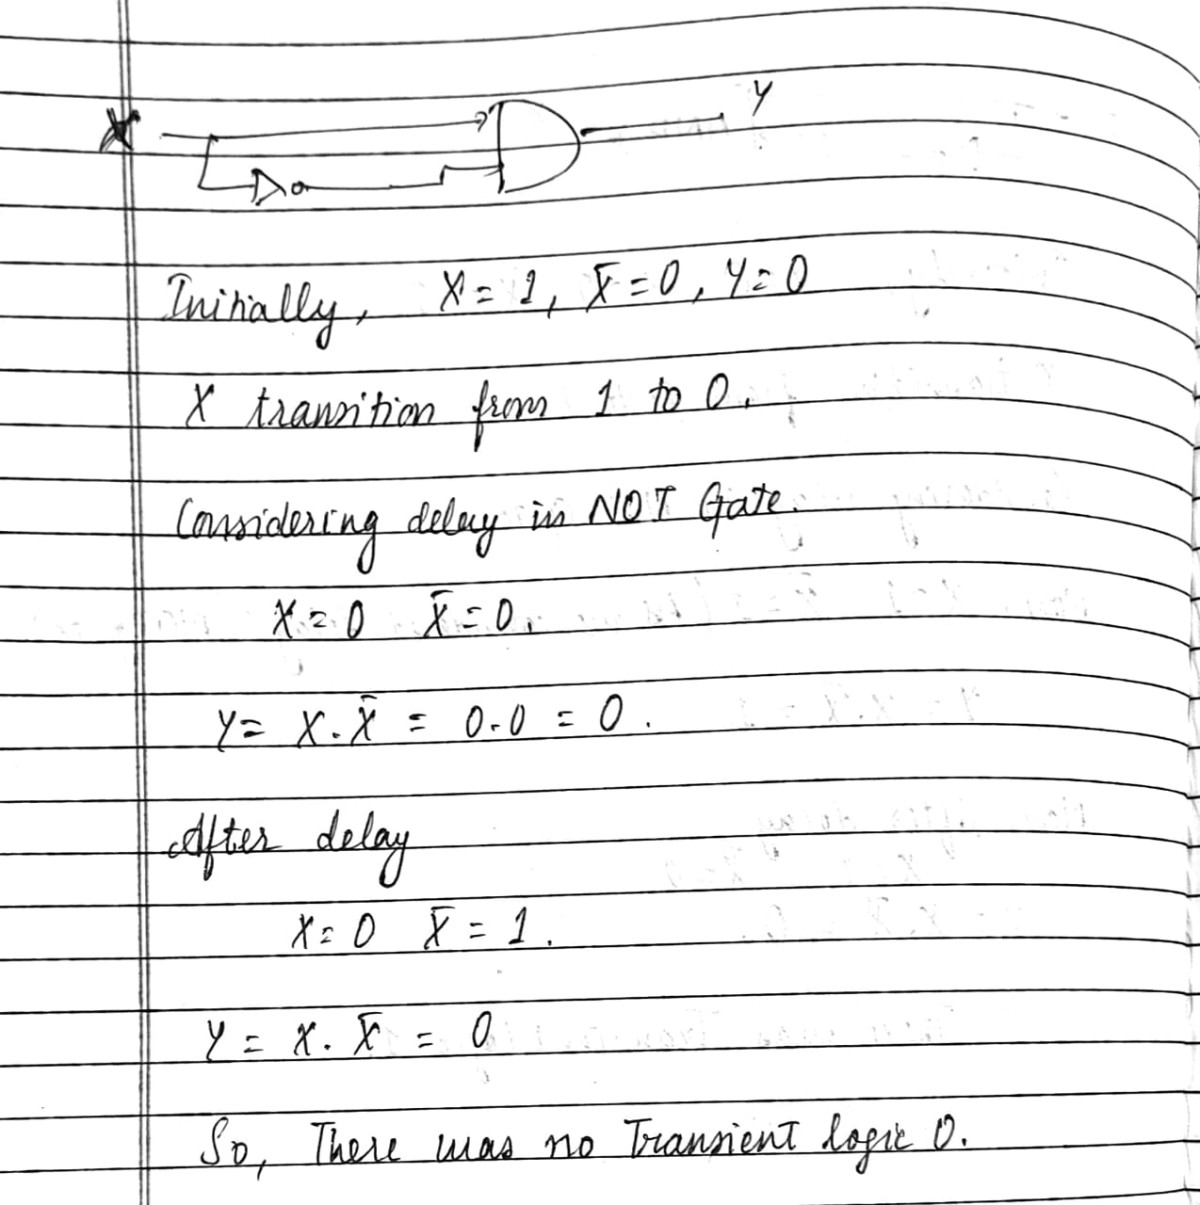 X
Y
Initially, X = 1, X̅ = 0, Y = 0
X transition from 1 to 0.
Considering delay in NOT Gate.
X = 0 X̅ = 0.
Y = X . X̅ = 0.0 = 0.
After delay
X = 0 X̅ = 1.
Y = X . X̅ = 0
So, There was no Transient logic 0.